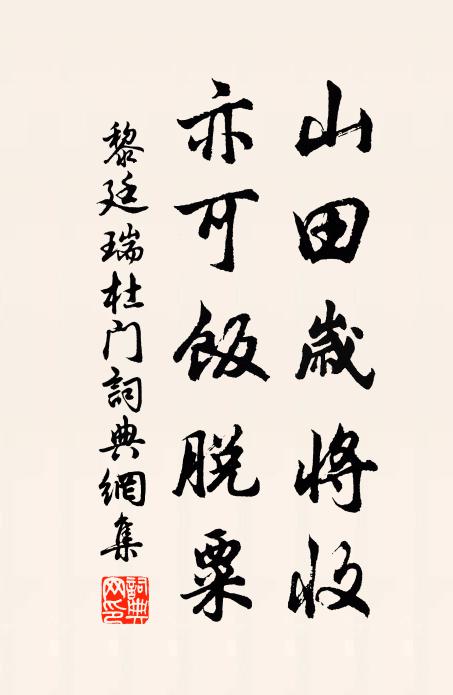 山田歲將收
亦可飯脫粟
黎廷瑞杜门詞典網集
詞典网印